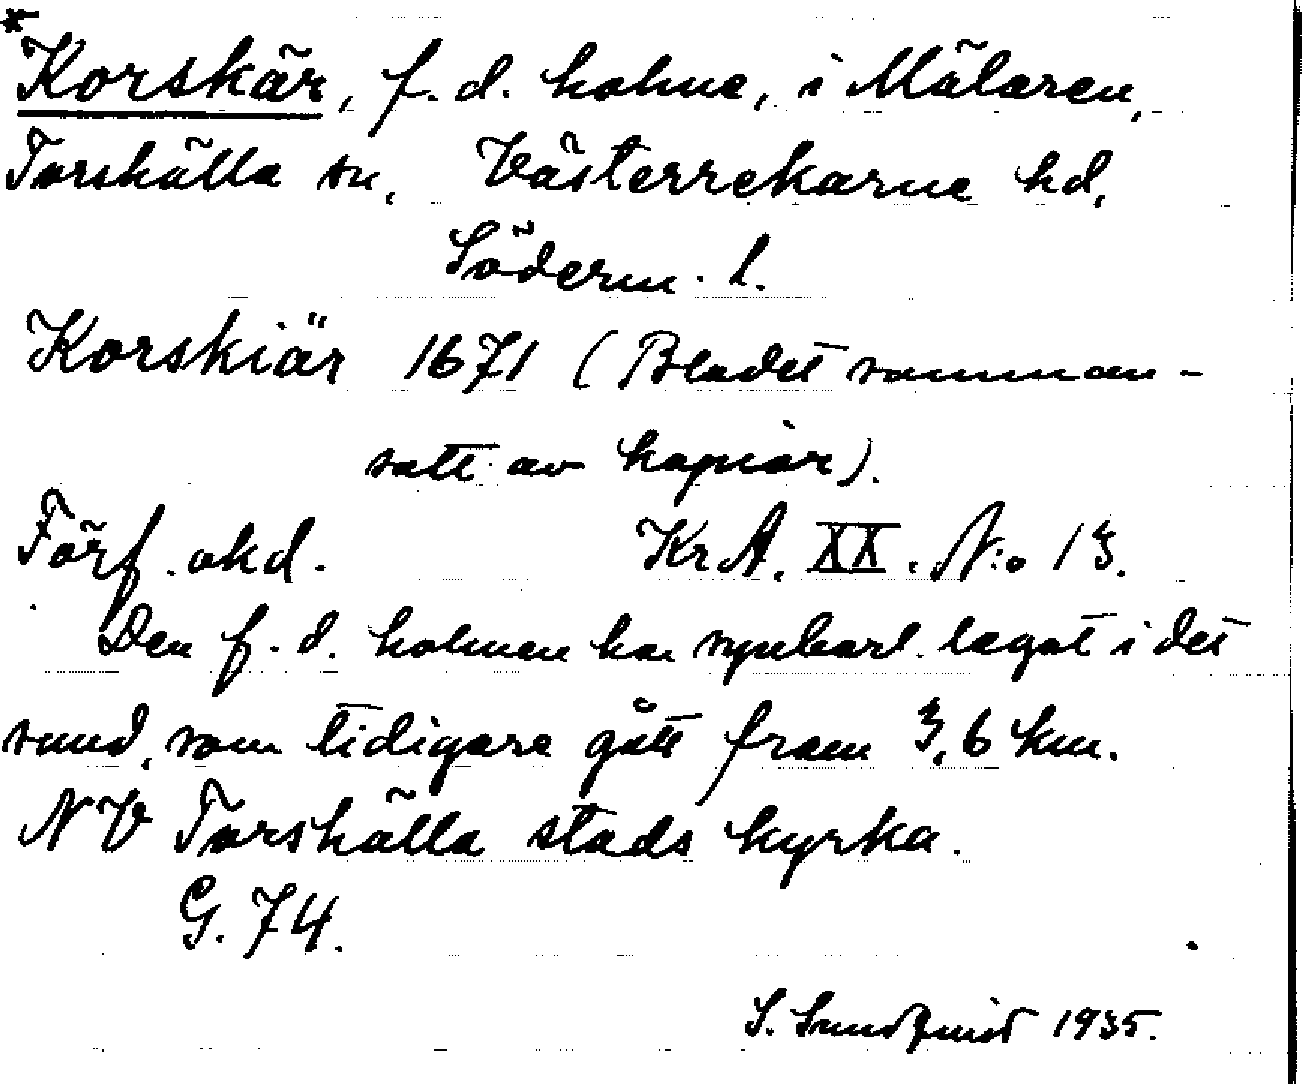 *Korskär, f.d. holme, i Mälaren,
Torshälla sn, Västerrekarne hd,
Söderm. l.
Korskiär 1671 (Bladet samman-
satt av kopior).
Förf. okd. KrA. XX. N:o 13.
Den f.d. holmen har synbarl. legat i det
sund, som tidigare gått fram 3,6 km.
NV Torshälla stads kyrka.
G. 74.
S. Sundquist 1935.